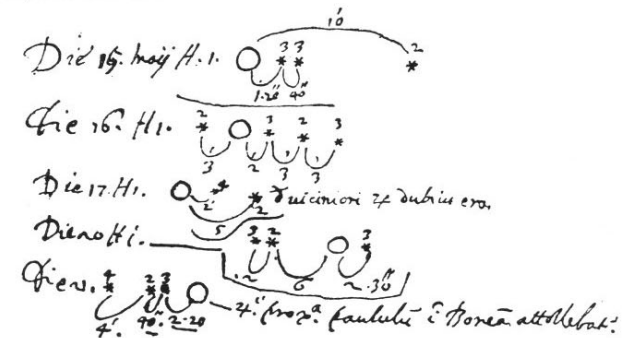 10'
Die 15. Maij H. 1. 3 3 2
1.20" 40"
Die 16. H 1. 2 3 2 3
3 2 3 3
Die 17. H 1. 4 2 viciniori ♃ dubius era.
2' 5
Die 20 H 1. 3 2 3
.2 6 2.30"
Die 21. 4 2 3
4'. 40". 2.20 4." prox.ª paululũ ĩ Boreã attollebat.